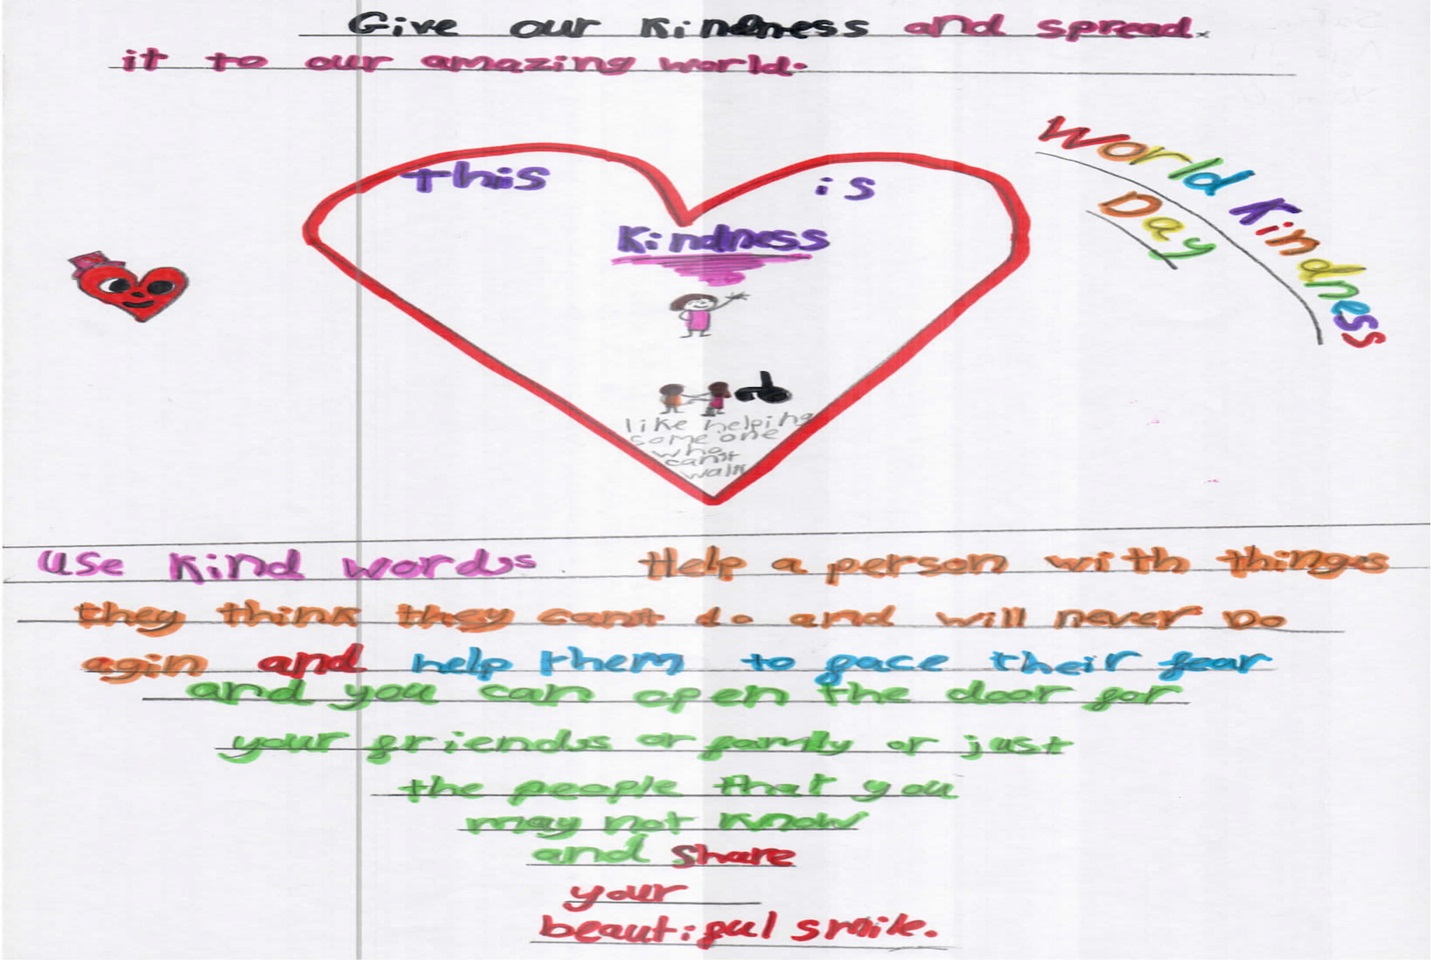 Give our Kindness and spread.
it to our amazing world.
World Kindness
Day
this is
Kindness
like helping
someone
who
can't
walk
Use Kind words Help a person with things
they think they can't do and will never Do
agin and help them to face their fear
and you can open the door for
your friends or family or just
the people that you
may not know
and share
your
beautiful smile.